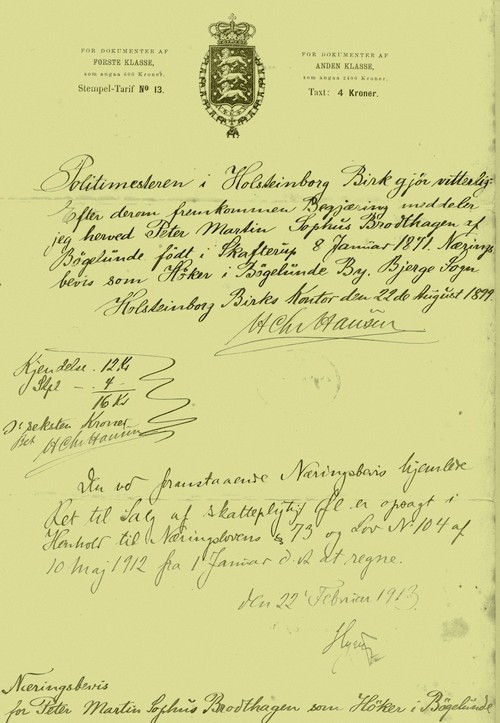 FOR DOKUMENTER AF
FØRSTE KLASSE,
som angaa 800 Kroner.
Stempel-Tarif № 13.
FOR DOKUMENTER AF
ANDEN KLASSE,
som angaa 2400 Kroner.
Taxt: 4 Kroner.
Politimesteren i Holsteinborg Birk gjör vitterlig:
Efter derom fremkommen Begjæring meddeler
jeg herved Peter Martin Sophus Brodthagen af
Bögelunde födt i Skafterup 8 Januar 1871. Nærings
bevis som Höker i Bögelunde By, Bjerge Sogn
Holsteinborg Birks Kontor den 22de August 1899.
H Chr Hansen
Kjendelse 12 Kr
Stpl — 4 -
16 Kr
seksten Kroner
Bet
H Chr Hansen
Den ved foranstaaende Næringsbevis hjemlede
Ret til Salg af skattepligtig Øl er opsagt i
Henhold til Næringslovens § 73 og Lov № 104 af
10 Maj 1912 fra 1 Januar d. A. at regne.
den 22 Februar 1913.
Næringsbevis
for Peter Martin Sophus Brodthagen som Höker i Bögelunde